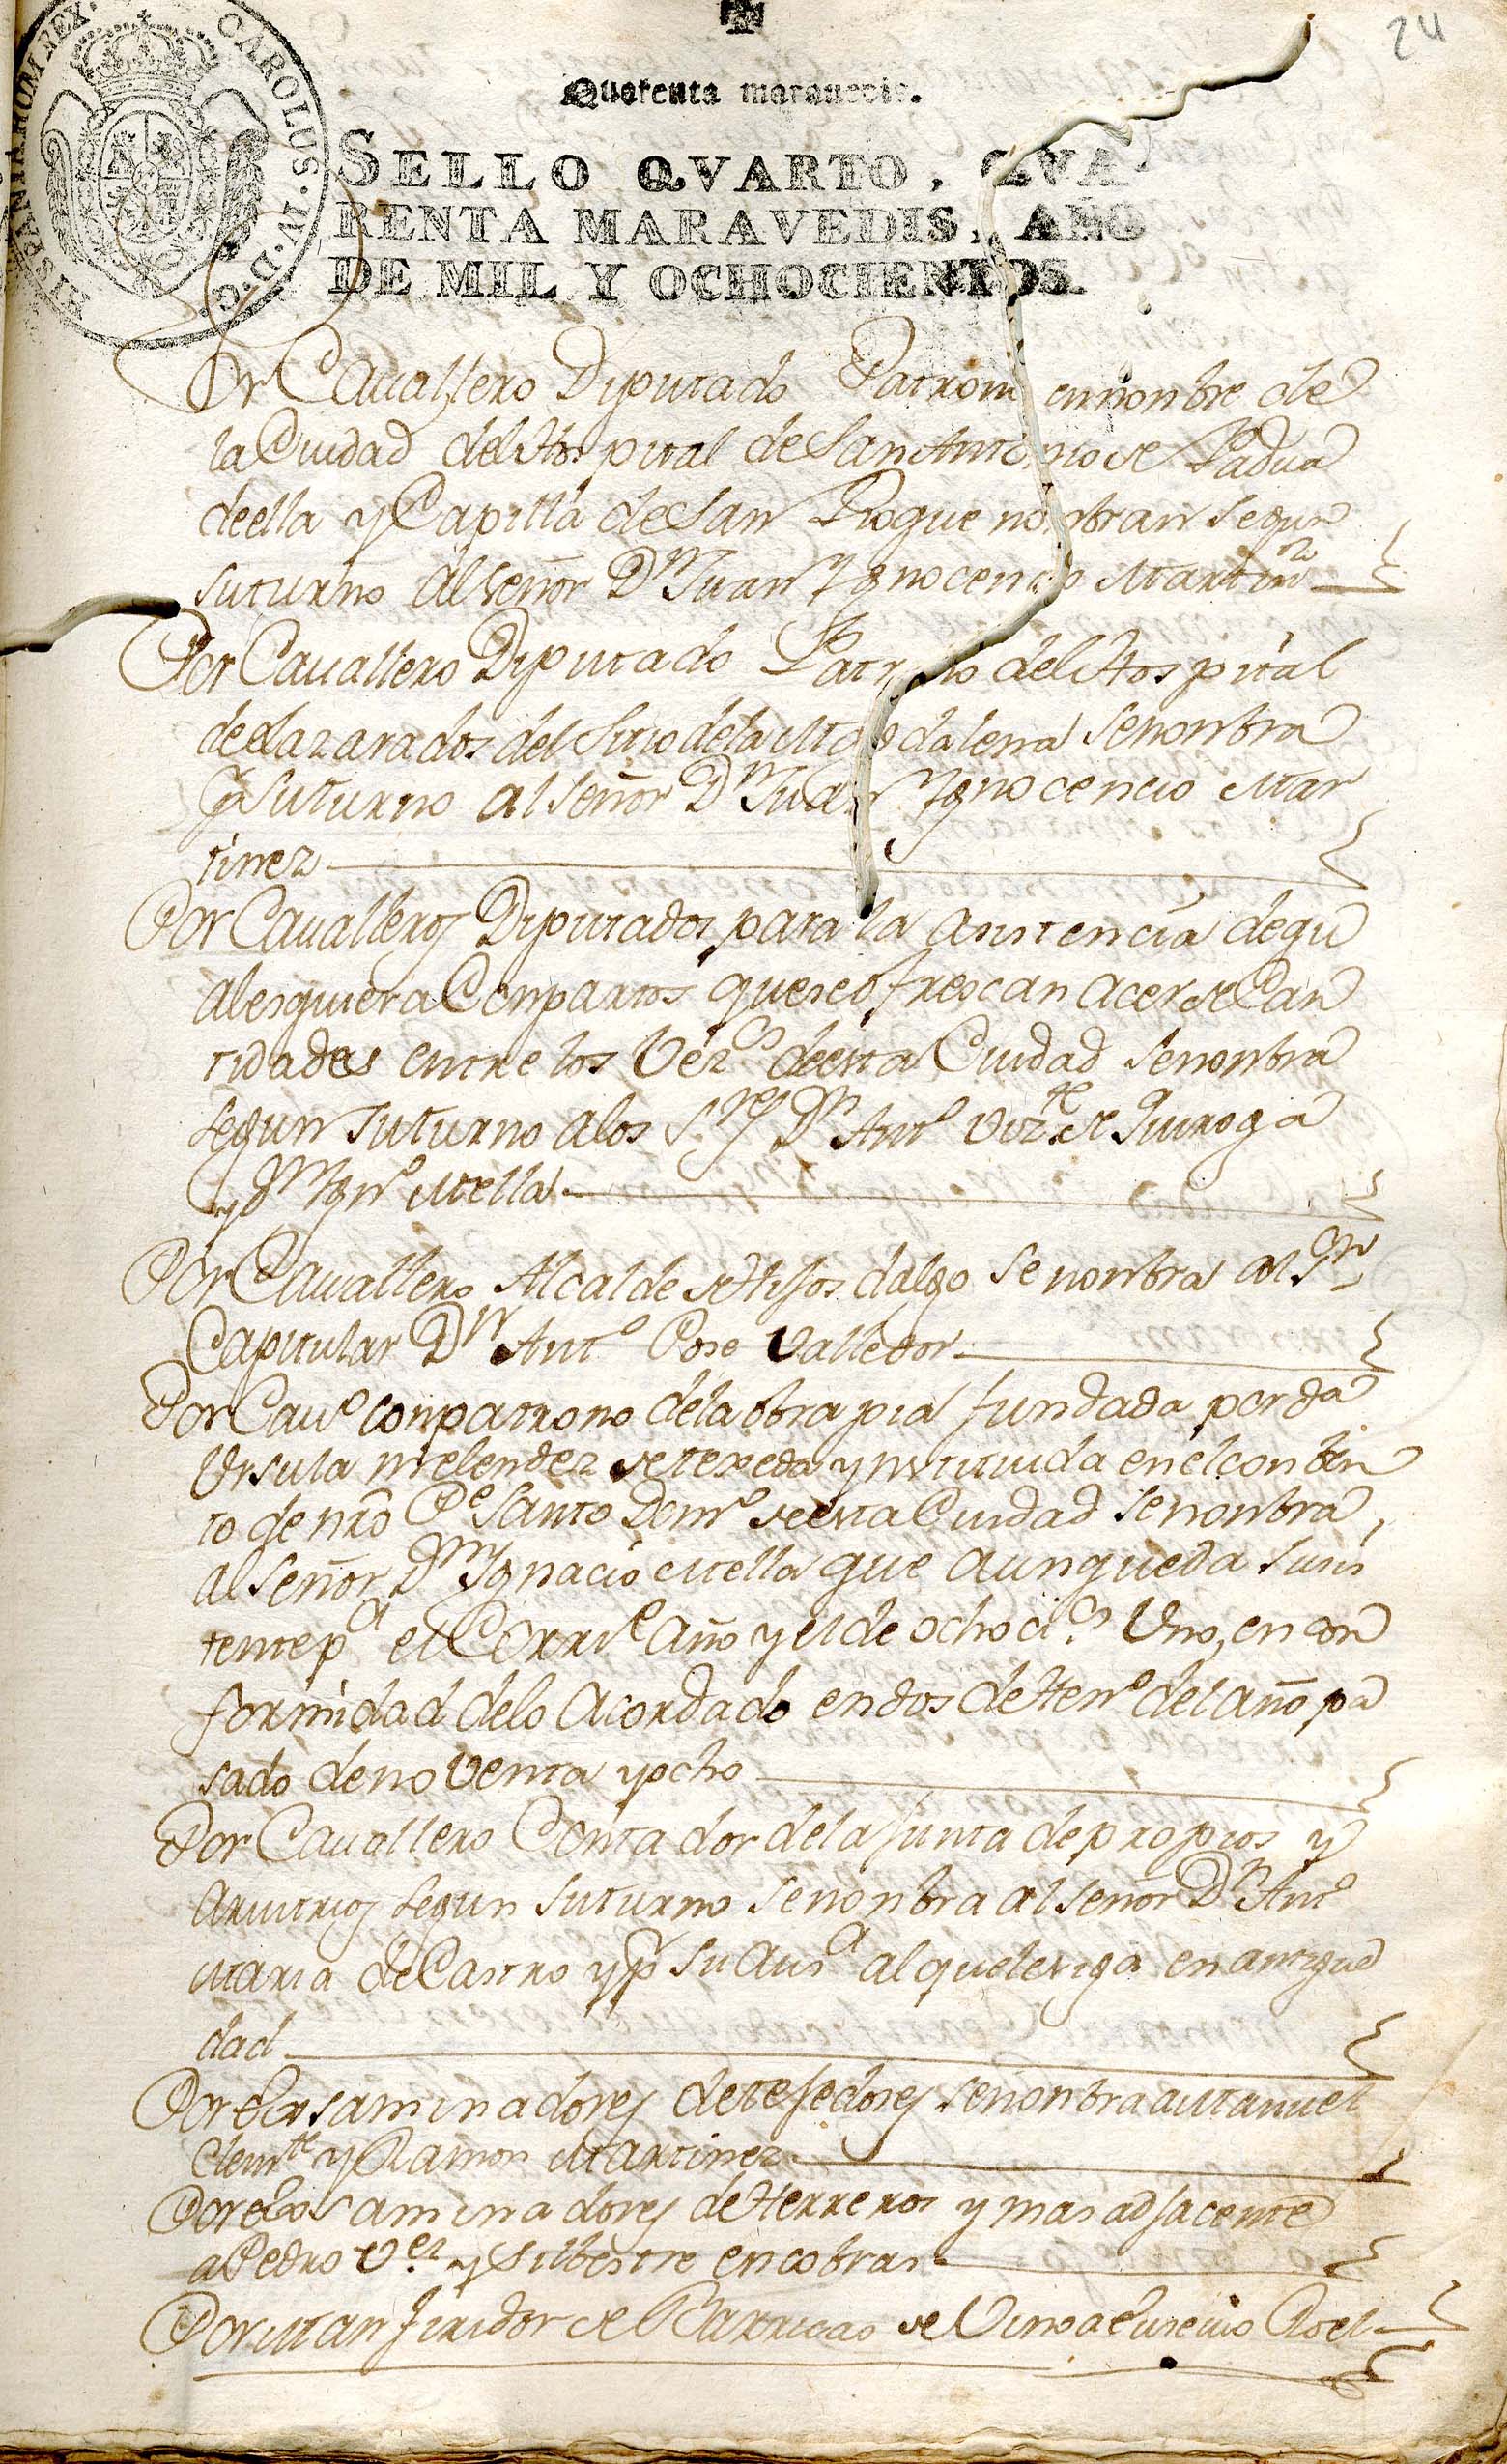 24
Quarenta maravedis.
HISPANIARUM REX. CAROLUS. IV. D. G.
SELLO QVARTO, QVA-
RENTA MARAVEDIS, AÑO
DE MIL Y OCHOCIENTOS.
Por Cavallero Diputado Patrono en nonbre de
la Ciudad del Hospital de San Antonio de Padua
de ella y Capilla de San Rroque nonbran segun
su turno al señor Dn Juan Ygnocencio Martinz
Por Cavallero Diputado Patrono del Hospital
de Lazarados del sitio de la Magdalena se nonbra
pr su turno al señor Dn Juan Ygnocencio Mar
tinez
Por Cavalleros Diputados para la asistencia de qu
alesquiera Conpartos que se ofrescan acer de Can
tidades entre los Vezos de esta Ciudad se nonbra
segun su turno a los Sres Dn Anto Vizte de Quiroga
y Dn Ygno Mella
Por Cavallero Alcalde de Hijos dalgo se nonbra al Sr
Capitular Dn Anto Pose Valledor
Por Cavo conpatrono de la obra pia fundada por da
Ursula melendez de texeda y ynstituida en el conbén
to de nro Pe Santo Domo de esta Ciudad se nonbra
al señor Dn Ygnacio Mella que aun queda susis
tente pa el Corrte año y el de ochocios Uno, en con
formidad de lo Acordado en dos de Heno del año pa
sado de noventa y ocho
Por Cavallero Contador de la Junta de propios y
Arvitrios segun su turno se nonbra al señor Dn Anto
Maria de Castro y pr su Ausa al que le siga en antigue
dad
Por Exsaminadores de tejedores se nonbra a Manuel
Clemte y Ramon Martinez
Por Exsaminadores de Herreros y mas adjacente
a Pedro Vez y Silbestre en cobras
Por Manjiridor de Barricas de Vino a Eusevio Roel